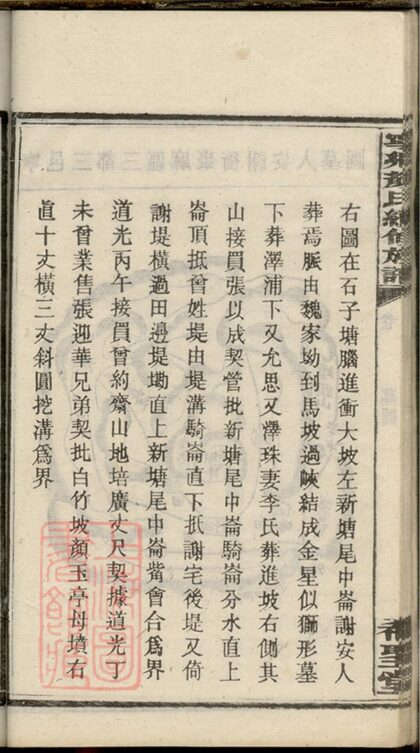 寧鄉顏氏續修族譜
右圖在石子塘腦進衝大坡左新塘尾中崙謝安人
葬焉脈由魏家坳到馬坡過峽結成金星似獅形墓
下葬澤浦下又允思又澤珠妻李氏葬進坡右側其
山接買張以成契管批新塘尾中崙騎崙分水直上
崙頂抵曾姓堤由堤溝騎崙直下抵謝宅後堤又倚
謝堤橫過田邊堤墈直上新塘尾中崙觜會合爲界
道光丙午接買曾約齋山地培廣丈尺契據道光丁
未曾業售張迎華兄弟契批白竹坡顏玉亭母墳右
直十丈橫三丈斜圓挖溝爲界
復聖堂